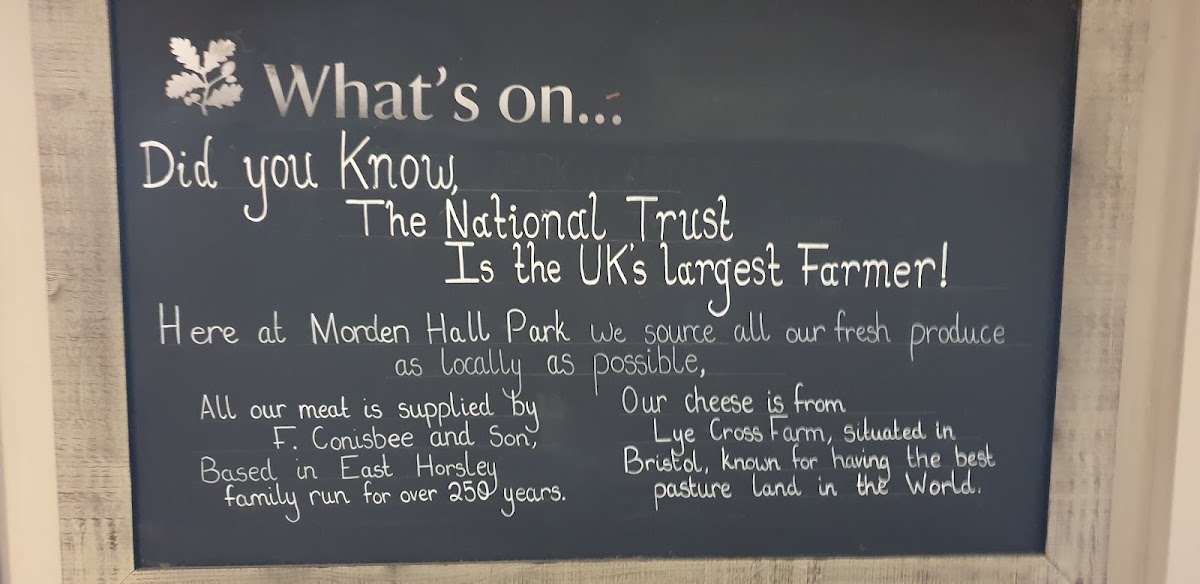 What's on...
Did you Know,
The National Trust
Is the UK's largest Farmer!
Here at Morden Hall Park we source all our fresh produce
as locally as possible,
All our meat is supplied by
F. Conisbee and Son,
Based in East Horsley
family run for over 250 years.
Our cheese is from
Lye Cross Farm, situated in
Bristol, known for having the best
pasture land in the World.